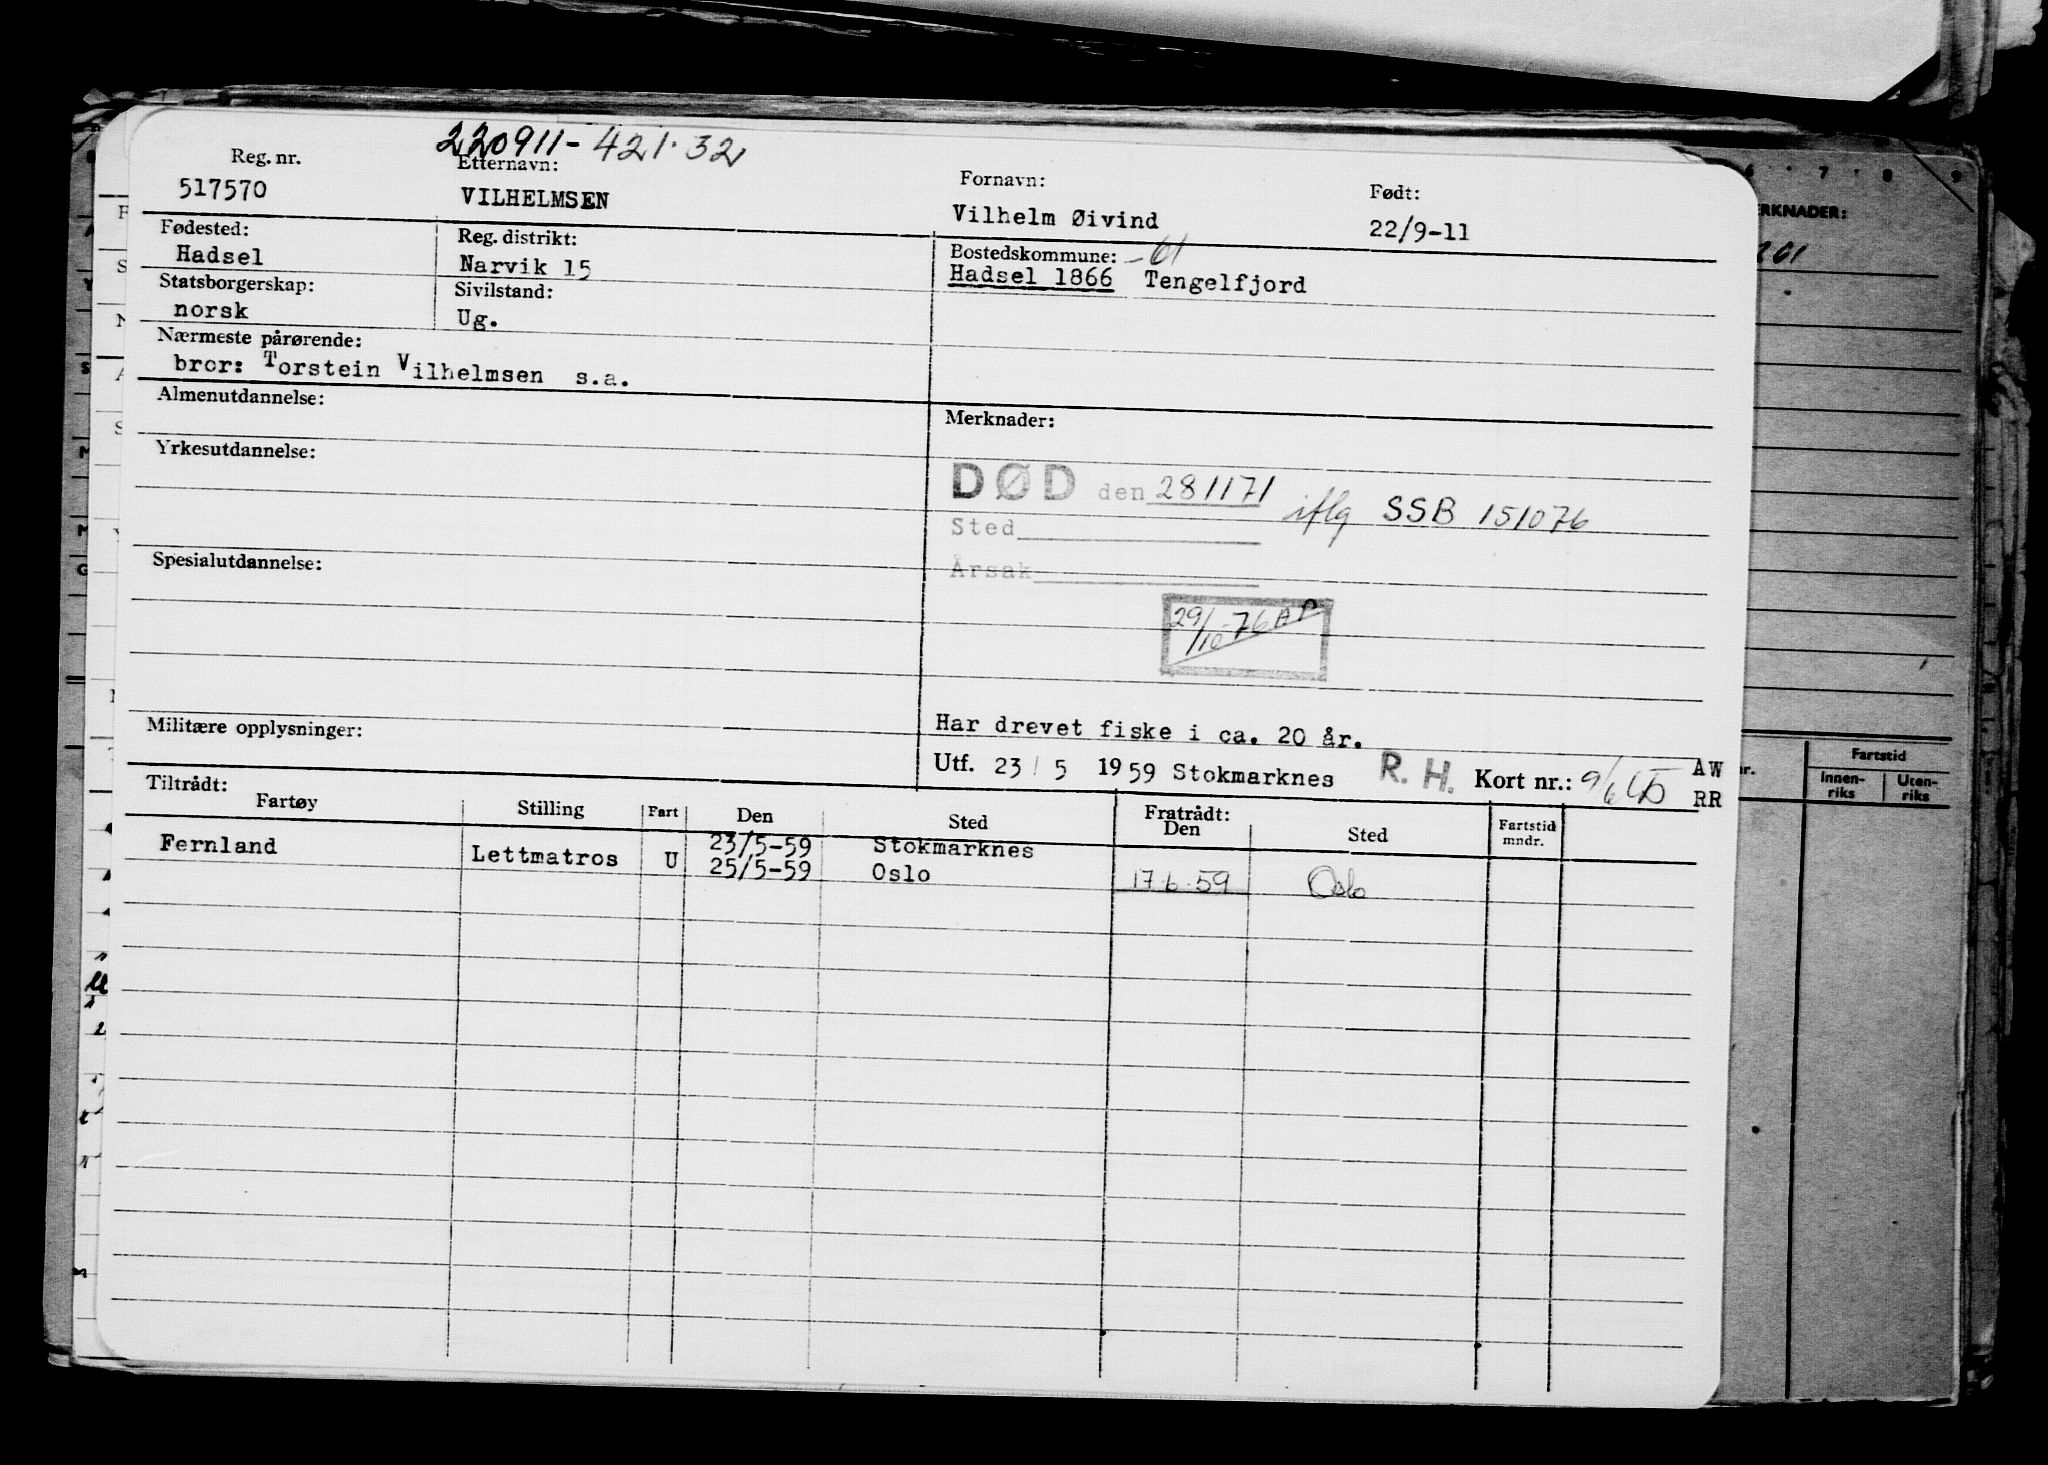 220911-421.32
Reg. nr. Etternavn: Fornavn: Født:
517570 VILHELMSEN Vilhelm Øivind 22/9-11
Fødested: Reg. distrikt: Bostedskommune: -61
Hadsel Narvik 15 Hadsel 1866 Tengelfjord
Statsborgerskap: Sivilstand:
norsk Ug.
Nærmeste pårørende:
bror: Torstein Vilhelmsen s.a.
Almenutdannelse: Merknader:
Yrkesutdannelse:
DØD den 281171 iflg SSB 151076
Sted
Årsak
Spesialutdannelse:
29/10-76 AP
Militære opplysninger:
Har drevet fiske i ca. 20 år.
Utf. 23/5 1959 Stokmarknes R.H. Kort nr.: 9/6 AW
RR
Tiltrådt: Fratrådt:
Fartøy Stilling Fart Den Sted Den Sted Fartstid mndr.
Fernland Lettmatros U 23/5-59 Stokmarknes
25/5-59 Oslo 17.6.59 Oslo
6 7 8 9
ERKNADER:
261
nr. Fartstid
Innen-riks Uten-riks